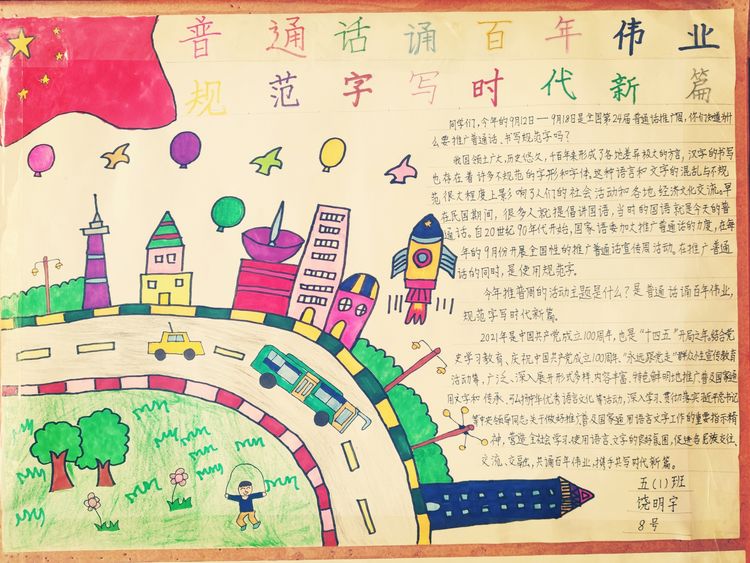 普通话诵百年伟业
规范字写时代新篇
同学们,今年的9月12日—9月18日是全国第24届普通话推广周,你们知道为什
么要推广普通话、书写规范字吗?
我国领土广大,历史悠久,千百年来形成了各地差异极大的方言,汉字的书写
也存在着许多不规范的字形和字体。这种语言和文字的混乱与不规
范很大程度上影响了人们的社会活动和各地经济文化交流。早
在民国期间,很多人就提倡讲国语,当时的国语就是今天的普
通话。自20世纪90年代开始,国家语委加大推广普通话的力度,在每
年的9月份开展全国性的推广普通话宣传周活动。在推广普通
话的同时,是使用规范字。
今年推普周的活动主题是什么?是普通话诵百年伟业,
规范字写时代新篇。
2021年是中国共产党成立100周年,也是“十四五”开局之年,结合党
史学习教育、庆祝中国共产党成立100周年“永远跟党走”群众性宣传教育
活动等,广泛、深入展开形式多样,内容丰富、特色鲜明地推广普及国家通
用文字和传承、弘扬中华优秀语言文化等活动,深入学习、贯彻落实习近平总书记
等中央领导同志关于做好推广普及国家通用语言文字工作的重要指示精
神,营造全社会学习、使用语言文字的良好氛围,促进各民族交往、
交流、交融,共诵百年伟业,携手共写时代新篇。
五(1)班
饶明宇
8号